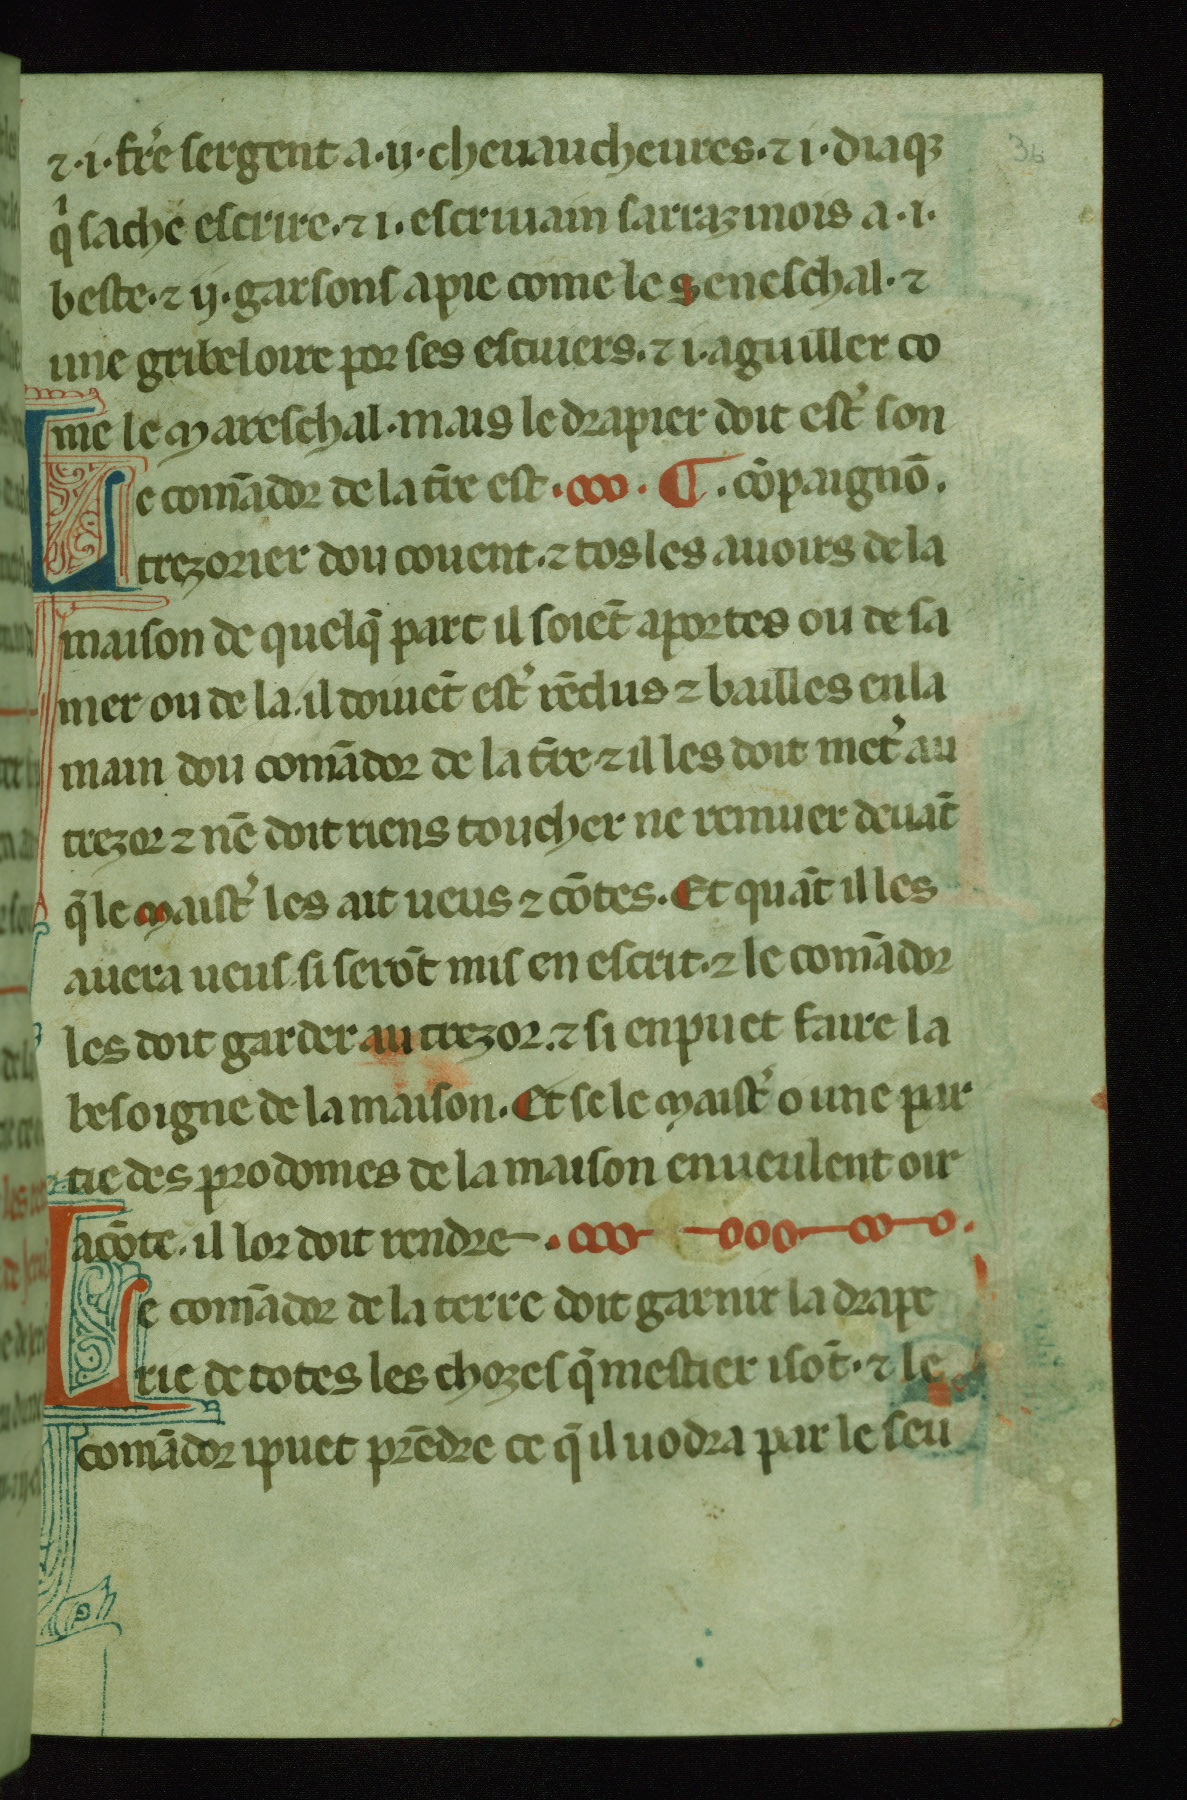 ⁊ ·i· fr̃e sergent a ·ij· cheuaucheures· ⁊ i· diaqꝫ
qͥ sache escrire· ⁊ i· escriuain sarrazinois a ·i·
beste· ⁊ ij· garsons a pie come le seneschal· ⁊
une gribeloire por ses escuiers· ⁊ i· aguillier co
me le mareschal· mais le drapier doit est̾ son
Le comãdor de la t̃re est · ¶ · cõpaignõ.
trezorier dou couent· ⁊ tos les auoirs de la
maison de quelq̃ part il soiet̃ aportes ou de sa
mer ou de la· il doiuet̃ est̾ rẽdus ⁊ bailles en la
main dou comãdor de la t̃re ⁊ il les doit met̾ au
trezor ⁊ nẽ doit riens toucher ne remuer deuãt
q̃ le maist̾ les ait ueus ⁊ cõtes. Et quãt il les
auera ueus si serõt mis en escrit· ⁊ le comãdor
les doit garder au trezor· ⁊ si en puet faire la
besoigne de la maison. Et se le maist̾ o une par
tie des prodomes de la maison en ueulent oir
acõte· il lor doit rendre ·
Le comãdor de la terre doit garnir la drape
rie de totes les chozes q̃ mestier i sõt· ⁊ le
comãdor i puet prẽdre ce q̃ il uodra par le seu
36